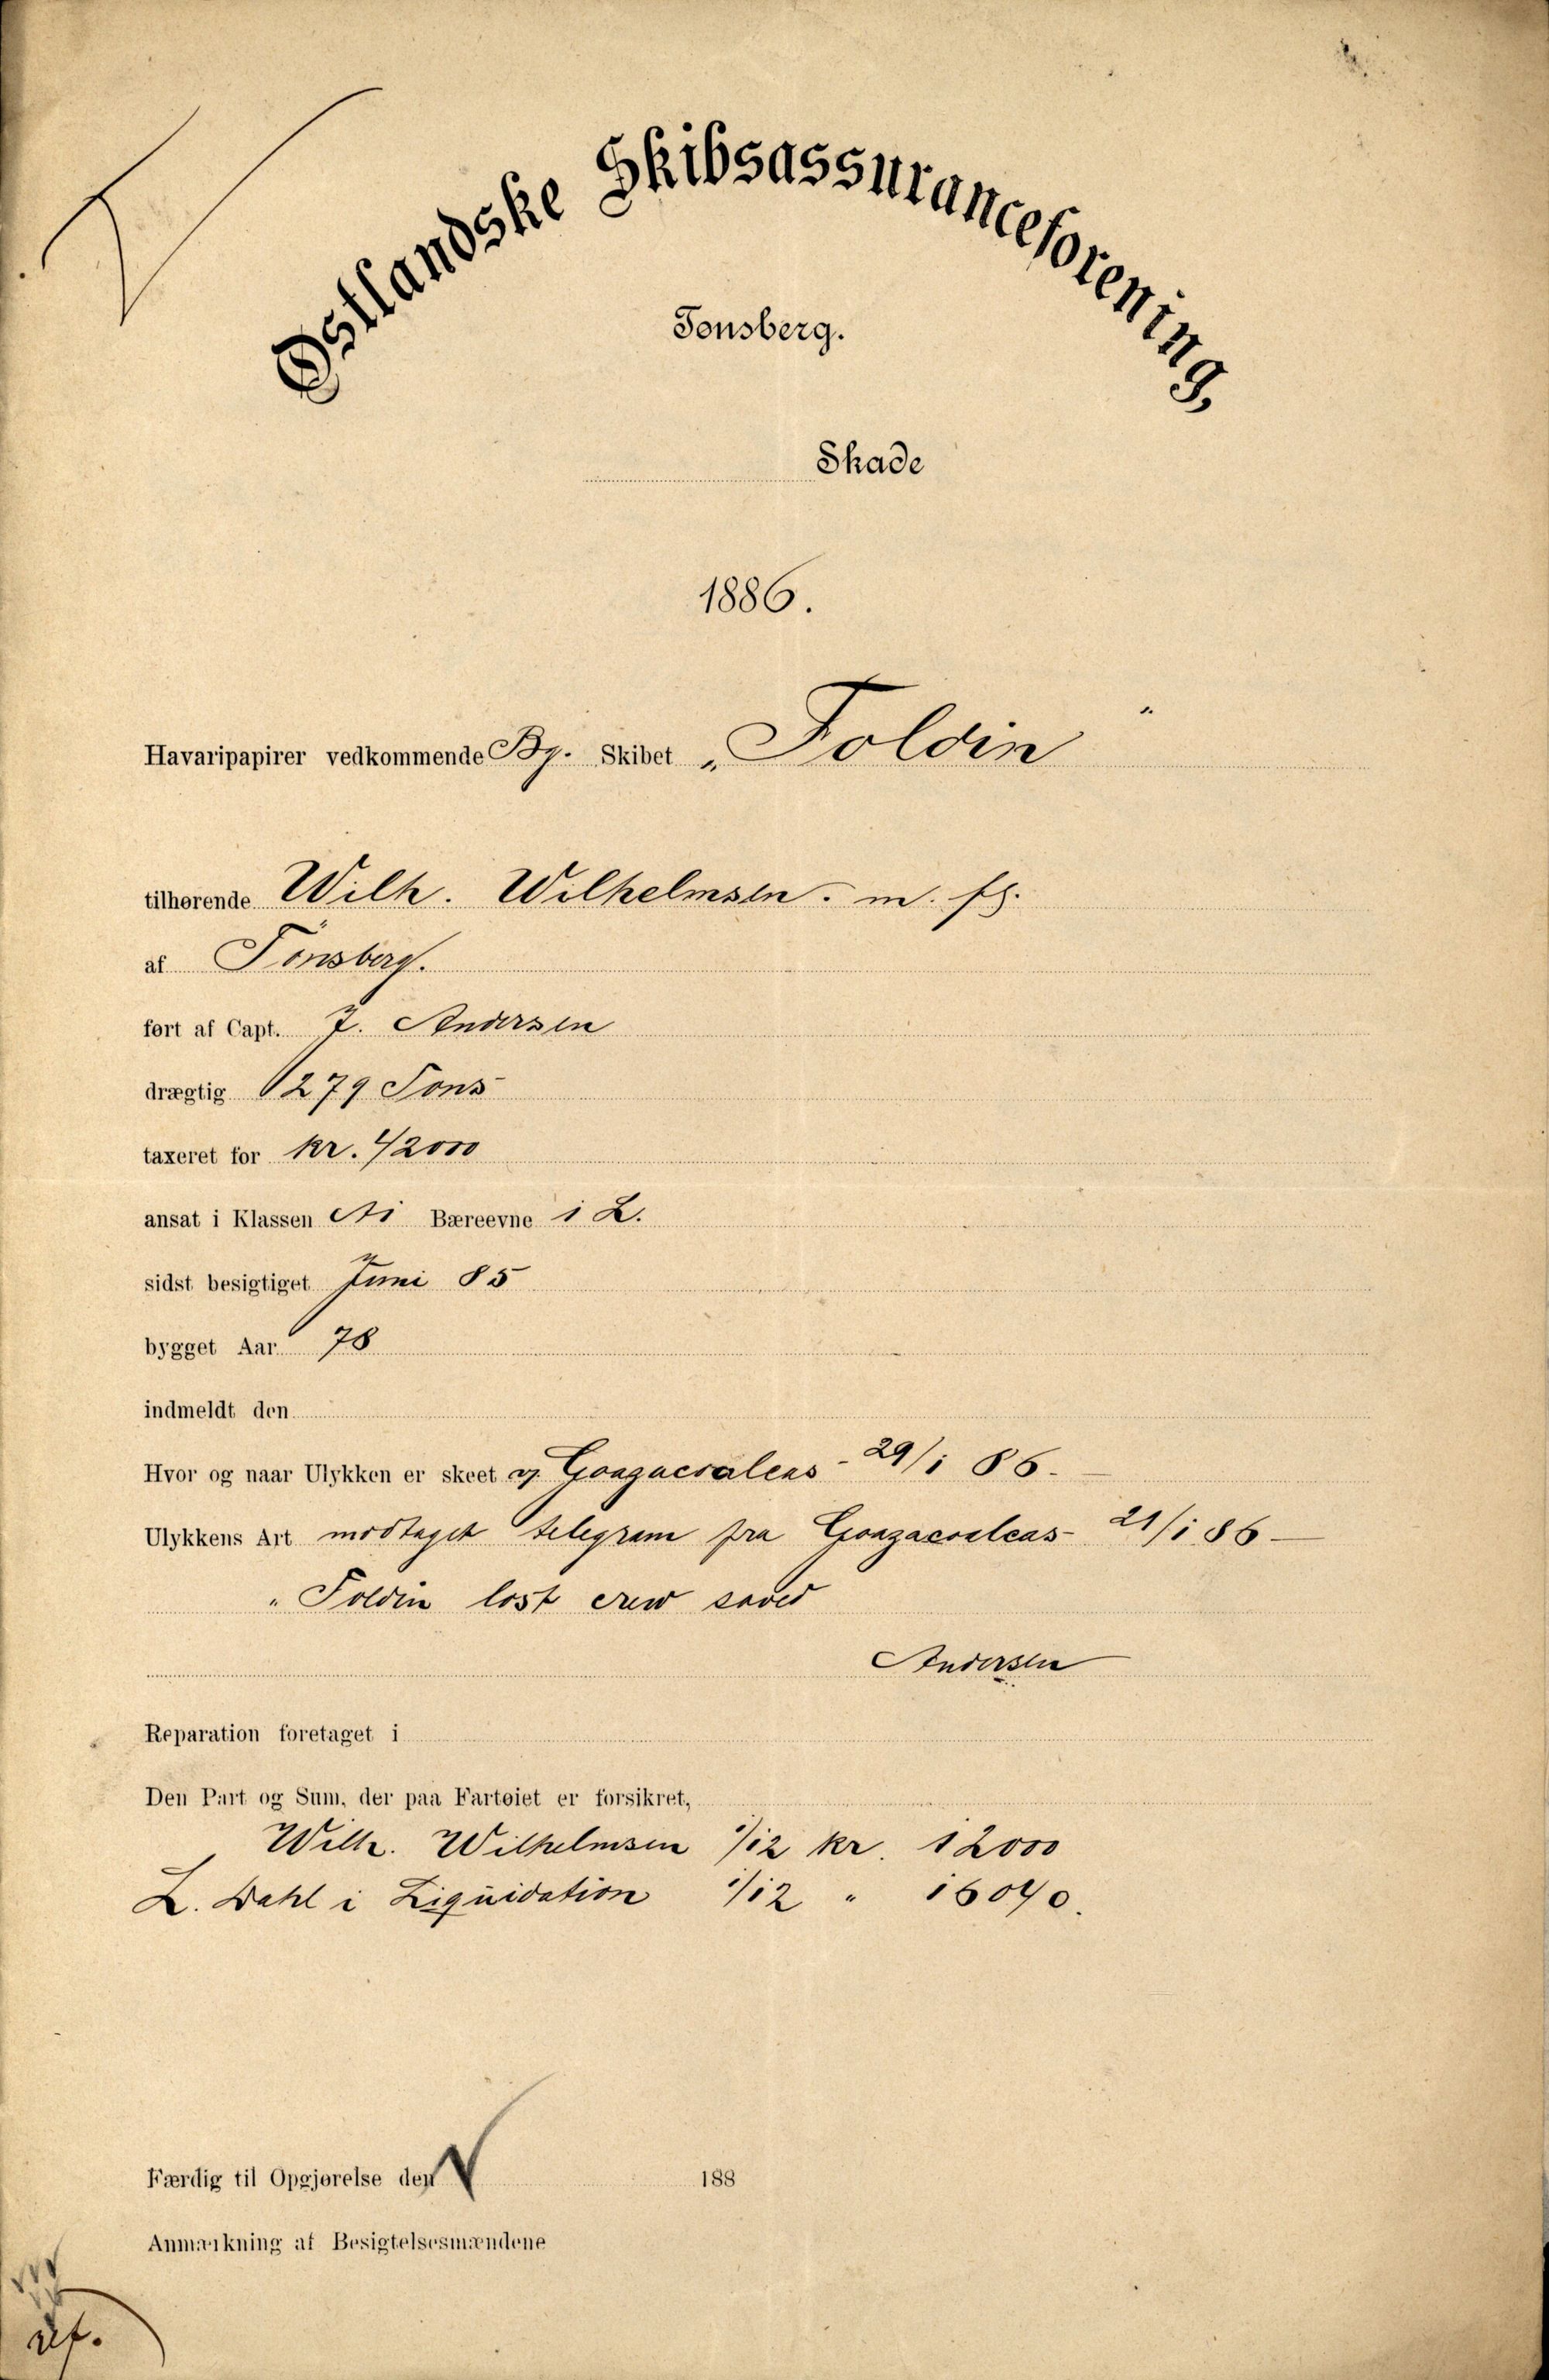 Østlandske Skibsassuranceforening,
Tønsberg.
Skade
1886.
Havaripapirer vedkommende Bg. Skibet „Foldin“
tilhørende Wilh. Wilhelmsen. m. fl.
af Tönsberg.
ført af Capt. J. Andersen
drægtig 279 Tons
taxeret for kr. 42000
ansat i Klassen A1 Bæreevne 1 L.
sidst besigtiget Juni 85
bygget Aar 78
indmeldt den
Hvor og naar Ulykken er skeet v. Goazacoalcas - 29/1 86. —
Ulykkens Art modtaget telegram fra Goazacoalcas - 21/1 86 —
„Foldin lost crew saved
Andersen
Reparation foretaget i
Den Part og Sum, der paa Fartøiet er forsikret,
Wilh. Wilhelmsen /12 kr. 12000
L. Dahl i Liquidation 1/12 " 16040.
Færdig til Opgjørelse den 188
Anmærkning af Besigtelsesmændene